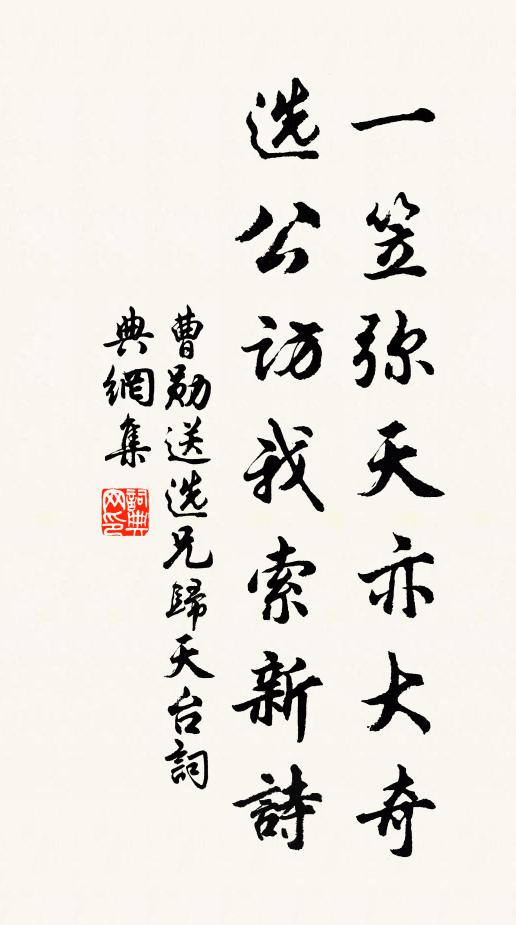 一笠弥天亦大奇
选公访我索新詩
曹勛送选兄歸天台詞
典網集
詞典网印